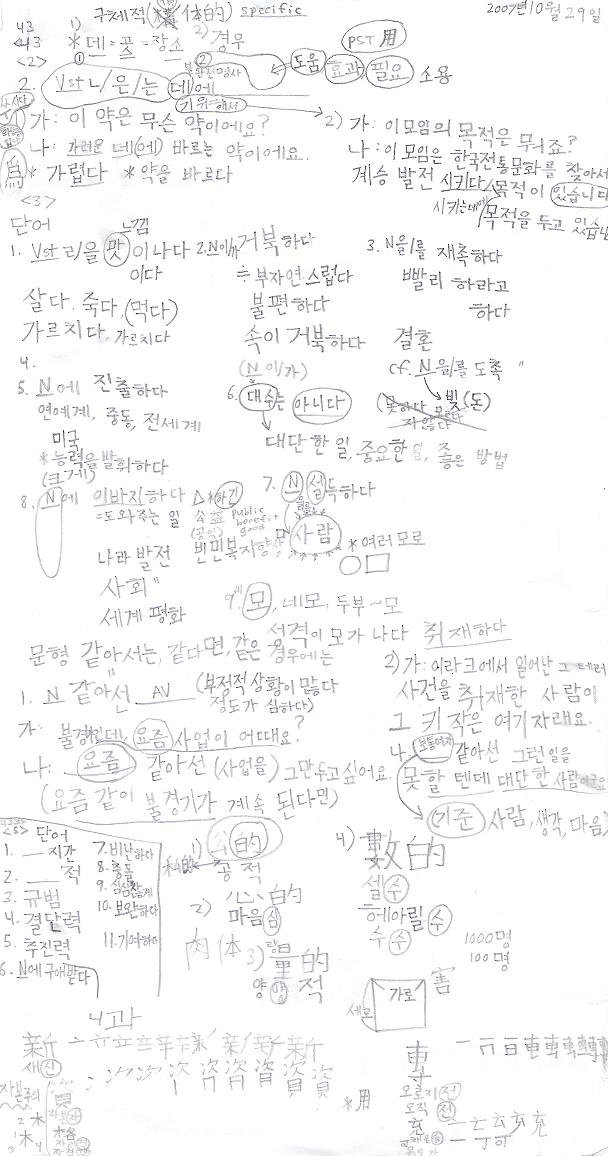 구체적(具体的) specific
2007년10월29일
43 1)
<43 *데=곳=장소 2)경우
PST 用
<2>
2. Vst ㄴ/은/는 데에 도움 효과 필요 소용
불완전명사
기 위해서
가: 이 약은 무슨 약이에요?
나: 가려운 데(에) 바르는 약이에요.
* 가렵다 *약을 바르다
2) 가: 이 모임의 목적은 뭐죠?
나: 이 모임은 한국전통문화를 찾아서
계승 발전 시키다/목적이 있습니다
시키는데에 목적을 두고 있습니
<3>
단어 느낌
1. Vst ㄹ/을 맛이 나다
이다
살다, 죽다, (먹다)
가르치다, 가르치다
2. N이/가 거북하다
≒ 부자연스럽다
불편하다
속이 거북하다
(N이/가)
3. N을/를 재촉하다
빨리 하라고
하다
결혼
cf. N을/를 도촉 "
빚(돈)
4.
5. N에 진출하다
연예계, 중동, 전세계
미국
*능력을 발휘하다
(크게)
6. 대수는 아니다
대단한 일, 중요한 일, 좋은 방법
7. N 설득하다
사람
*여러모로
8. N에 이바지하다
=도와주는 일 公益 public benefit good
(공익)
나라 발전 빈민복지향상
사회 "
세계 평화
9. 모, 네모, 두부~모
성격이 모가 나다 취재하다
문형 같아서는, 같다면, 같은 경우에는
1. N 같아선 ___ AV (부정적 상황이 많다
정도가 심하다)
가: 불경기인데 요즘 사업이 어때요?
나: 요즘 같아선 (사업을) 그만두고 싶어요.
(요즘 같이 불경기가 계속 된다면)
2) 가: 이라크에서 일어난 그 테러
사건을 취재한 사람이
그 키 작은 여기자래요.
나: 보통여자 같아선 그런 일을
못할 텐데 대단한 사람이군요
(기준) 사람, 생각, 마음)
<5> 단어
1. __ 지간
2. __ 적
3. 규범
4. 결단력
5. 추진력
6. N에 구애받다
7. 비난하다
8. 충돌
9. 심심찮게
10. 보완하다
11. 기여하다
1) 公的
私的 공적
2) 心的
마음심
肉体 3) 量的
양 양 적
4) 數的
셀 수
헤아릴 수
수 수
1000명
100명
害
세로 가로
4과
新
새 신
자본주의 資
木
*用
專
오로지 전
오직 전
充